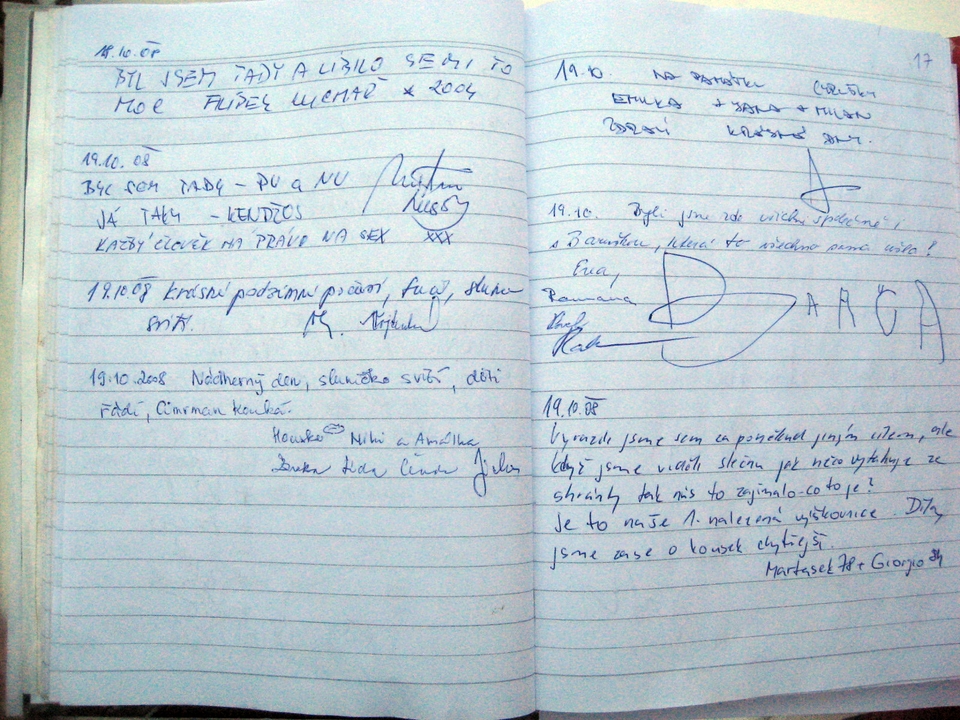 19.10.08
BYL JSEM TADY A LÍBILO SE MI TO
MOC FILÍPEK * 2004
19.10.08
BYL SEM TADY - PU a NU
JÁ TAKY - KENDŽOS
KAŽDÝ ČLOVĚK MÁ PRÁVO NA SEX XXX
19.10.08 krásné podzimní počasí, fučí, slunce
svítí.
19.10.2008 Nádherný den, sluníčko svítí, děti
řádí, Cimrman kouká.
Niki a Amálka
17
19.10. NA PAMÁTKU
EMILKA + JANA + MILAN
KRÁSNÉ DNY.
19.10. Byli jsme zde všichni společně,
s Baruškou, která to všechno sama ušla!
Eva,
Romana
BARČA
19.10.08
Vyrazili jsme sem za poněkud jiným cílem, ale
když jsme viděli slečnu jak něco vytahuje ze
shránky tak nás to zajímalo - co to je?
Je to naše 1. nalezená výškovnice. Díky
jsme zase o kousek chytřejší.
Martasek78 + Giorgio84